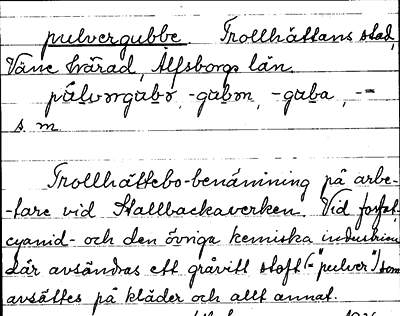 pulvergubbe. Trollhättans stad,
Väne härad, Älfsborgs län.
pùlvərgubə -gubən, -guba, -=
s. m.
Trollhättebo-benämning på arbe-
-tare vid Stallbackaverken. Vid fosfat,
cyanid- och den övriga kemiska industrien
där avsändras ett gråvitt stoft (-"pulver") som
avsättes på kläder och allt annat.